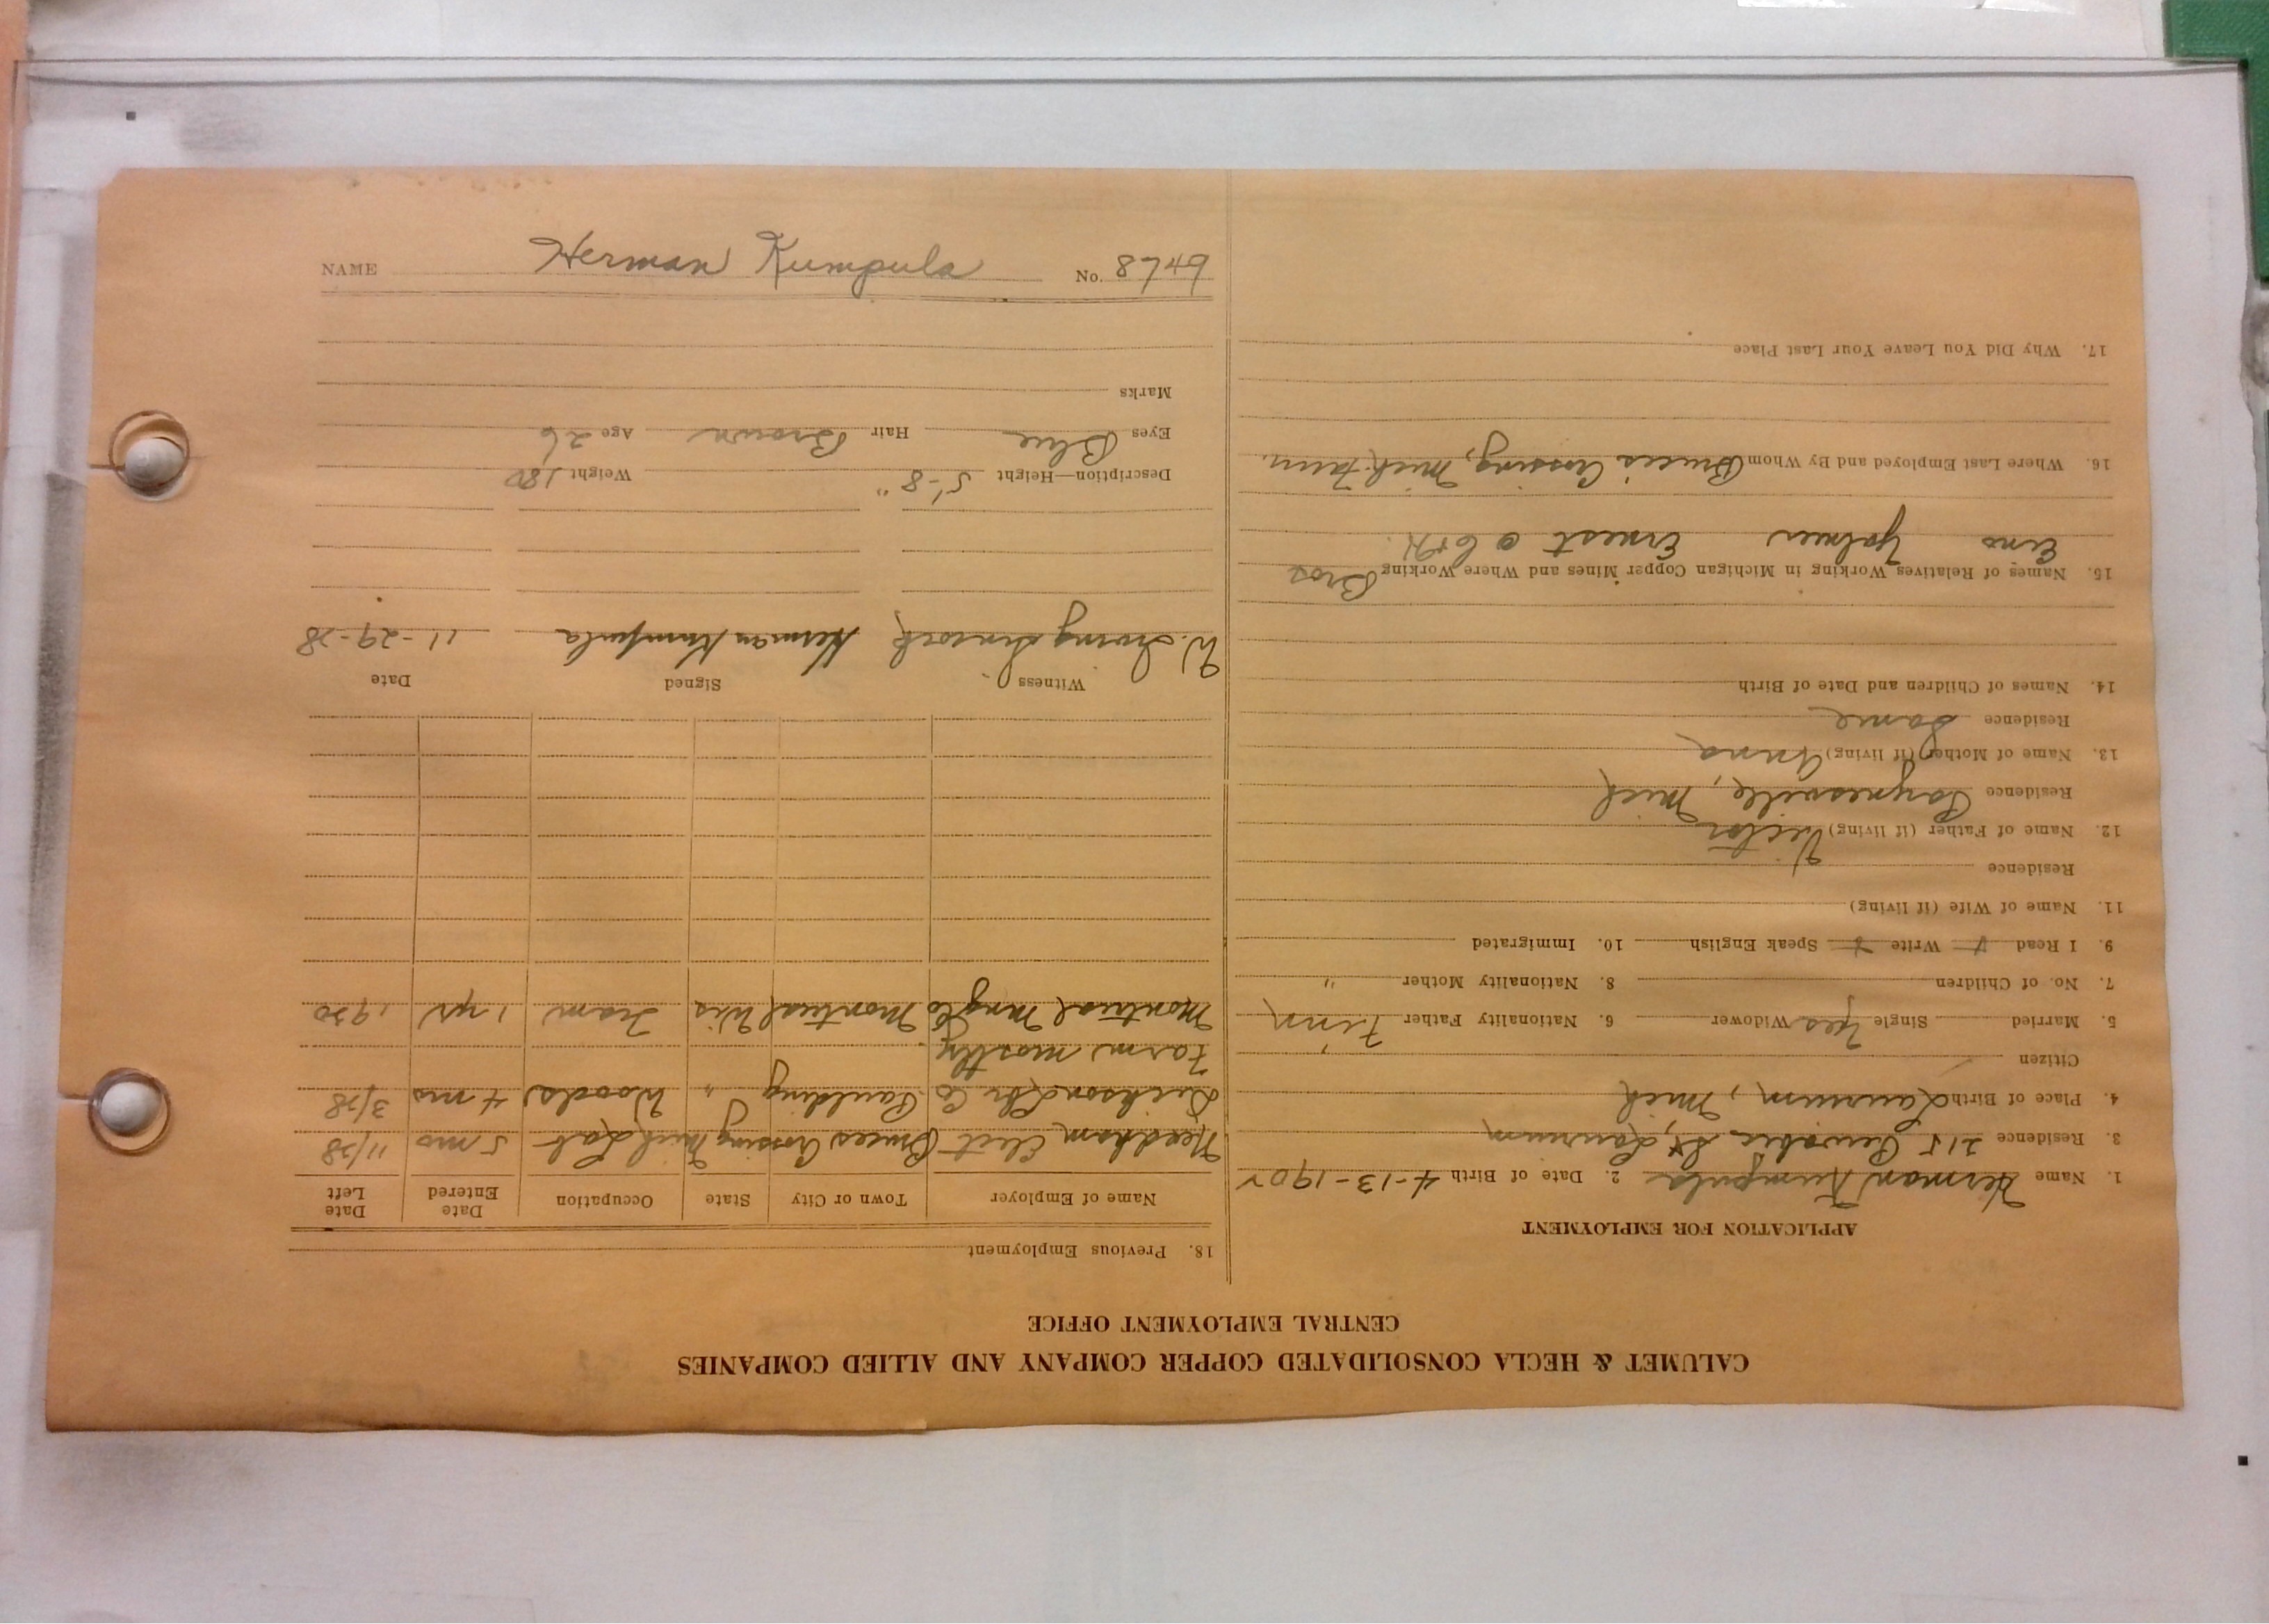 CALUMET & HECLA CONSOLIDATED COPPER COMPANY AND ALLIED COMPANIES
CENTRAL EMPLOYMENT OFFICE
APPLICATION FOR EMPLOYMENT
1. Name Herman Kumpula 2. Date of Birth 4-13-190
3. Residence 215 Pewabic St, Laurium
4. Place of Birth Laurium, Mich
Citizen
5. Married Single Yes Widower 6. Nationality Father Finn
7. No. of Children 8. Nationality Mother "
9. I Read Write Speak English 10. Immigrated
11. Name of Wife (if living)
Residence
12. Name of Father (if living) Victor
Residence Paynesville, Mich
13. Name of Mother (if living) Anna
Residence Same
14. Names of Children and Date of Birth
15. Names of Relatives Working in Michigan Copper Mines and Where Working Bros
Eino Yalmer Ernest @ C+H.
16. Where Last Employed and By Whom Bruces Crossing, Mich. Farm.
17. Why Did You Leave Your Last Place
18. Previous Employment
Name of Employer Town or City State Occupation Date Entered Date Left
Needham Elect Bruces Crossing Mich Lab 5 mo 11/28
Erickson Lbr Co Paulding " Woods 4 mo 3/28
Farm mostly
Montreal Mng Co Montreal Wis Tram 1 yr 1920
Witness Signed Date
W. Irving Herman Kumpula 11-29-28
Description—Height 5'-8" Weight 180
Eyes Blue Hair Brown Age 26
Marks
NAME Herman Kumpula No. 8749